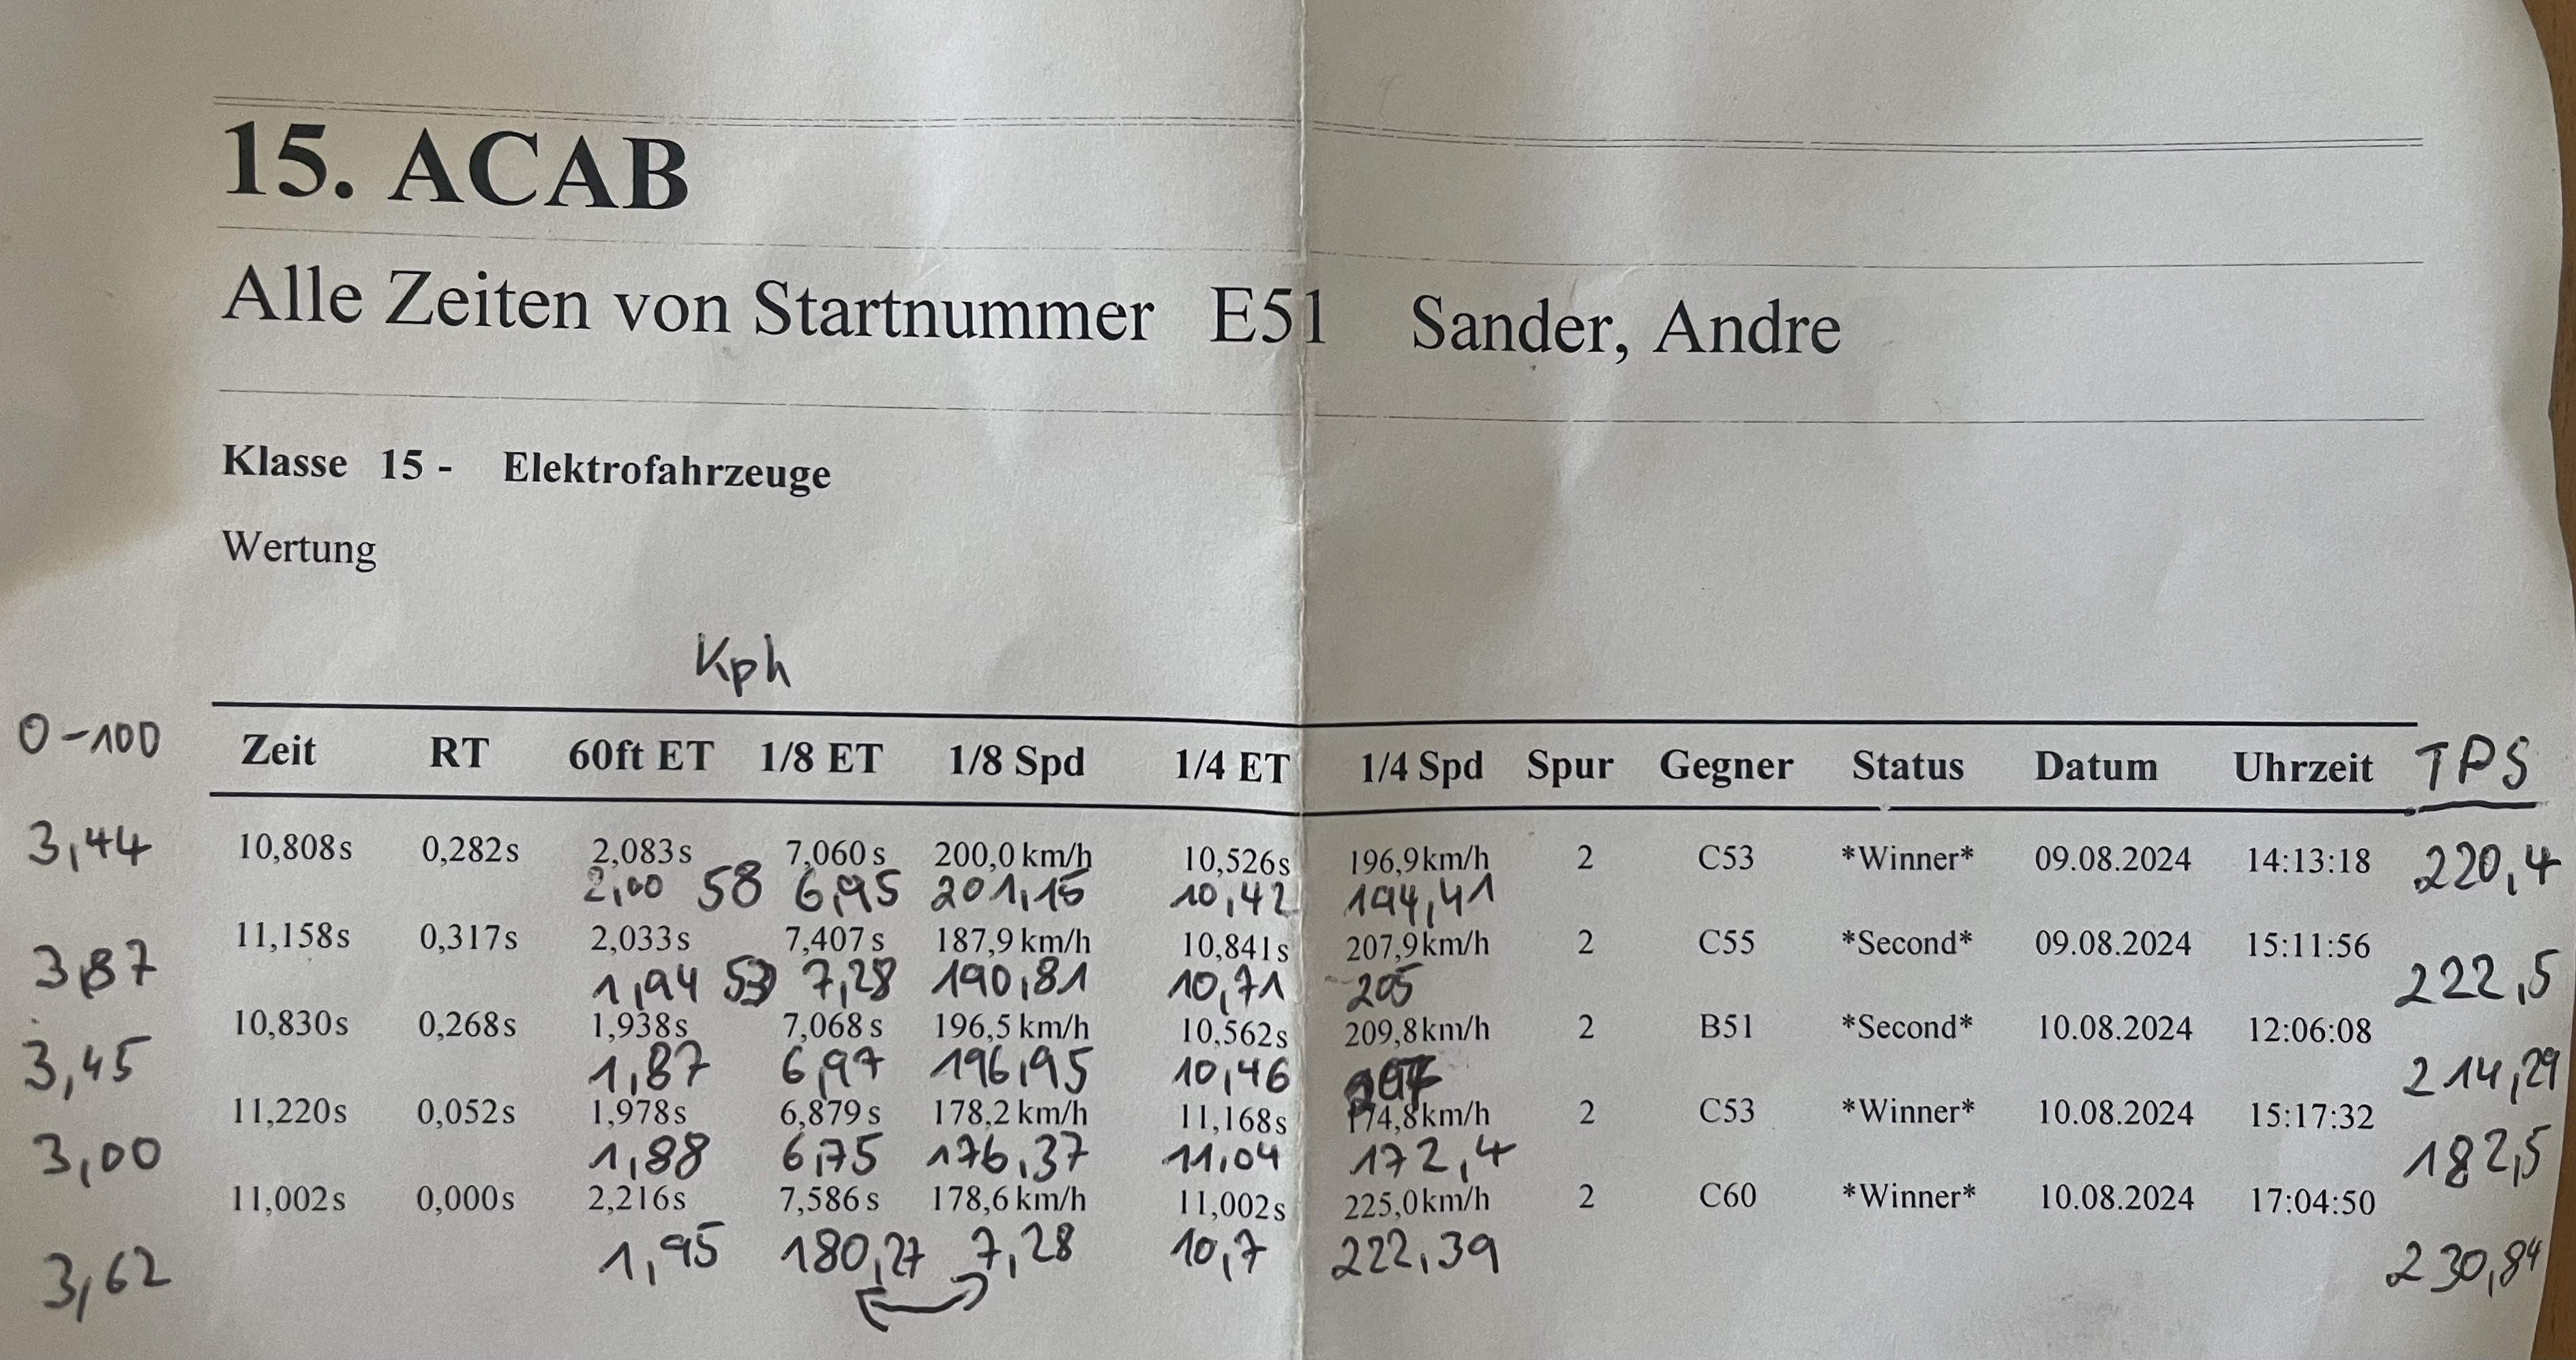 15. ACAB
Alle Zeiten von Startnummer E51 Sander, Andre
Klasse 15 - Elektrofahrzeuge
Wertung
Kph
0-100 Zeit RT 60ft ET 1/8 ET 1/8 Spd 1/4 ET 1/4 Spd Spur Gegner Status Datum Uhrzeit TPS
3,44 10,808s 0,282s 2,083s 7,060s 200,0 km/h 10,526s 196,9km/h 2 C53 *Winner* 09.08.2024 14:13:18 220,4
2,00 58 6,95 201,15 10,42 194,41
3,87 11,158s 0,317s 2,033s 7,407s 187,9 km/h 10,841s 207,9km/h 2 C55 *Second* 09.08.2024 15:11:56 222,5
1,94 53 7,28 190,81 10,71 205
3,45 10,830s 0,268s 1,938s 7,068s 196,5 km/h 10,562s 209,8km/h 2 B51 *Second* 10.08.2024 12:06:08 214,29
1,87 6,97 196,95 10,46
3,00 11,220s 0,052s 1,978s 6,879s 178,2 km/h 11,168s 174,8km/h 2 C53 *Winner* 10.08.2024 15:17:32 182,5
1,88 6,75 176,37 11,04 172,4
3,62 11,002s 0,000s 2,216s 7,586s 178,6 km/h 11,002s 225,0km/h 2 C60 *Winner* 10.08.2024 17:04:50 230,84
1,95 180,27 7,28 10,7 222,39